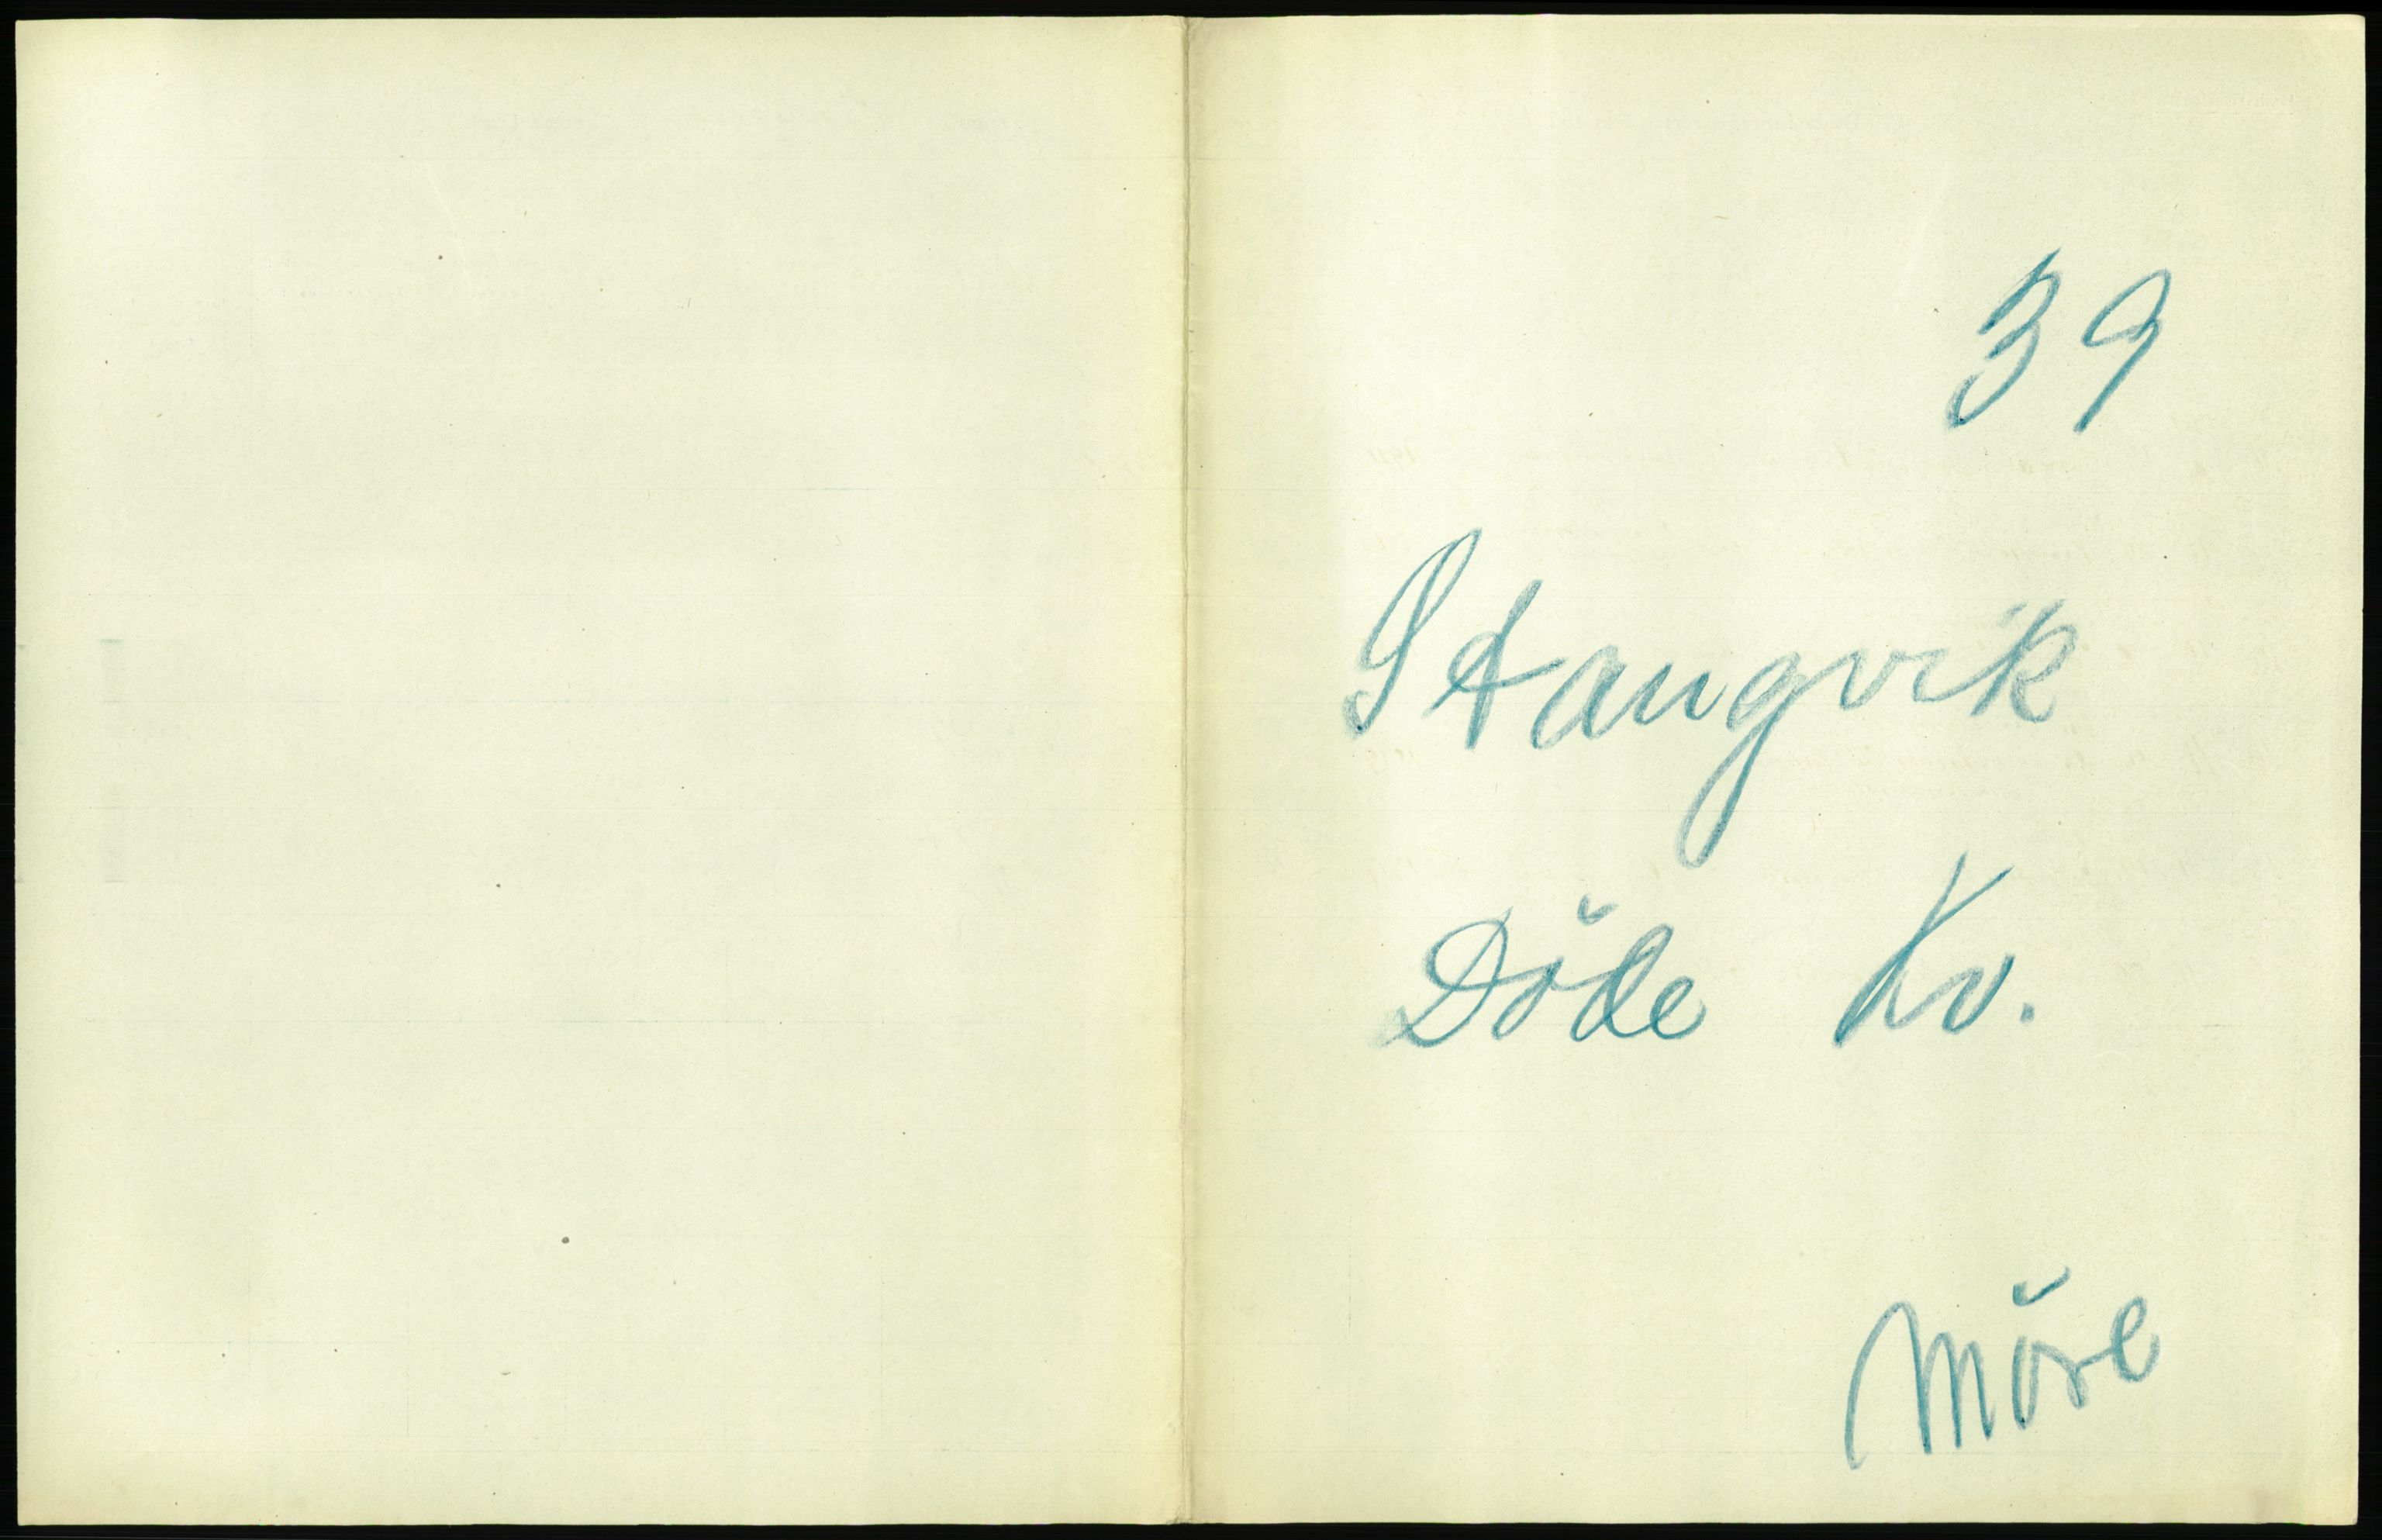 39
Stangvik
Döde Kv.
Möre